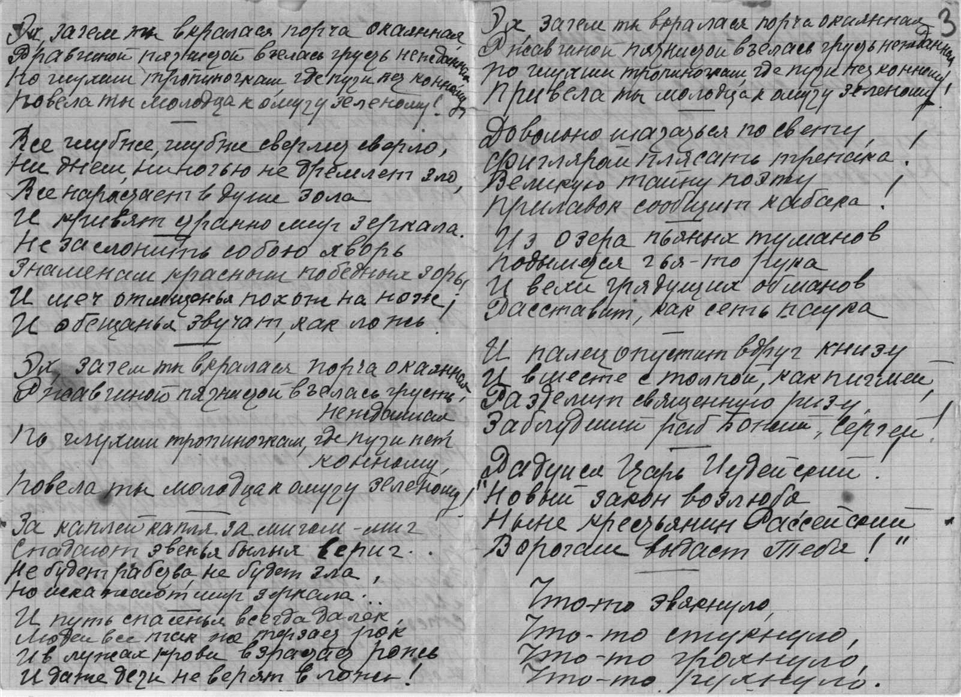 Эх зачем ты вкралася порча окаянная,
Ржавчиной пятницой взелась грусть
По глухим тропиночкам, где пути нет конному
Повела ты молодца к омуту зеленому!
Все глубже, глубже сверлит сверло,
Ни днем, ни ночью не дремлет зло,
Все нарастает в душе зола
И кривят странно мир зеркала.
Не заслонить собою хворь
Знаменам красным победных зорь,
И меч отмщенья похож на нож,
И обещанья звучат, как ложь!
Эх, зачем ты вкралася порча окаянная
Ржавчиной взелась грусть,
По глухим тропиночкам, где пути нет
конному,
Повела ты молодца к омуту зеленому!
За каплей капля за мигом - миг
Спадают звенья былых вериг..
Не будет рабства, не будет зла,
Но искажают мир зеркала...
И путь спасенья всегда далек,
Людей все так же терзает рок
И в лужах крови взрастает рожь
И даже дети не верят в ложь!
3
Эх зачем ты вкралася порча окаянная
Ржавчиной взелась грусть
По глухим тропиночкам, где пути нет конному
Привела ты молодца к омуту зеленому!
Довольно шататься по свету,
Фигляром плясать трепака!
Великую тайну поэту
Прилавок сообщит кабака!
Из озера пьяных туманов
Подымется чья-то рука
И вехи грядущих обманов
Расставит, как сеть паука
И палец опустит вдруг книзу
И вместе с толпой, как пигмей,
Разделит священную ризу
Заблудший раб Божий, Сергей!
Радуйся Царь Иудейский!
"Новый закон возлюбя
Ныне крестьянин Рассейский
Ворогам выдаст Тебя!"
Что-то звякнуло,
Что-то стукнуло,
Что-то грохнуло,
Что-то рухнуло.